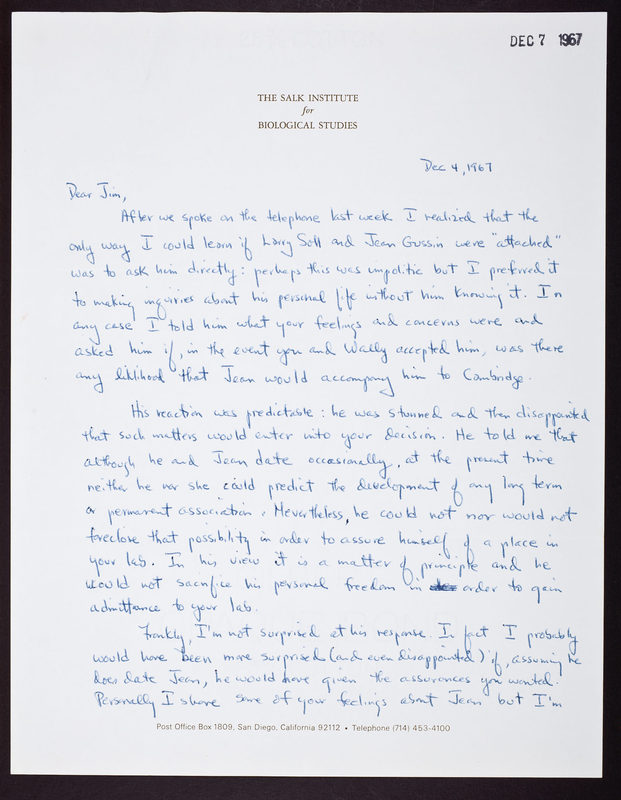 DEC 7 1967
THE SALK INSTITUTE
for
BIOLOGICAL STUDIES
Dec 4, 1967
Dear Jim,
After we spoke on the telephone last week I realized that the
only way I could learn if Larry Soll and Jean Gussin were "attached"
was to ask him directly: perhaps this was impolitic but I preferred it
to making inquiries about his personal life without him knowing it. In
any case I told him what your feelings and concerns were and
asked him if, in the event you and Wally accepted him, was there
any liklihood that Jean would accompany him to Cambridge.
His reaction was predictable: he was stunned and then disappointed
that such matters would enter into your decision. He told me that
although he and Jean date occasionally, at the present time
neither he nor she could predict the development of any long term
or permanent association. Nevertheless, he could not nor would not
foreclose that possibility in order to assure himself of a place in
your lab. In his view it is a matter of principle and he
would not sacrifice his personal freedom in order to gain
admittance to your lab.
Frankly, I'm not surprised at his response. In fact I probably
would have been more surprised (and even disappointed) if, assuming he
does date Jean, he would have given the assurances you wanted.
Personally I share some of your feelings about Jean but I'm
Post Office Box 1809, San Diego, California 92112 • Telephone (714) 453-4100